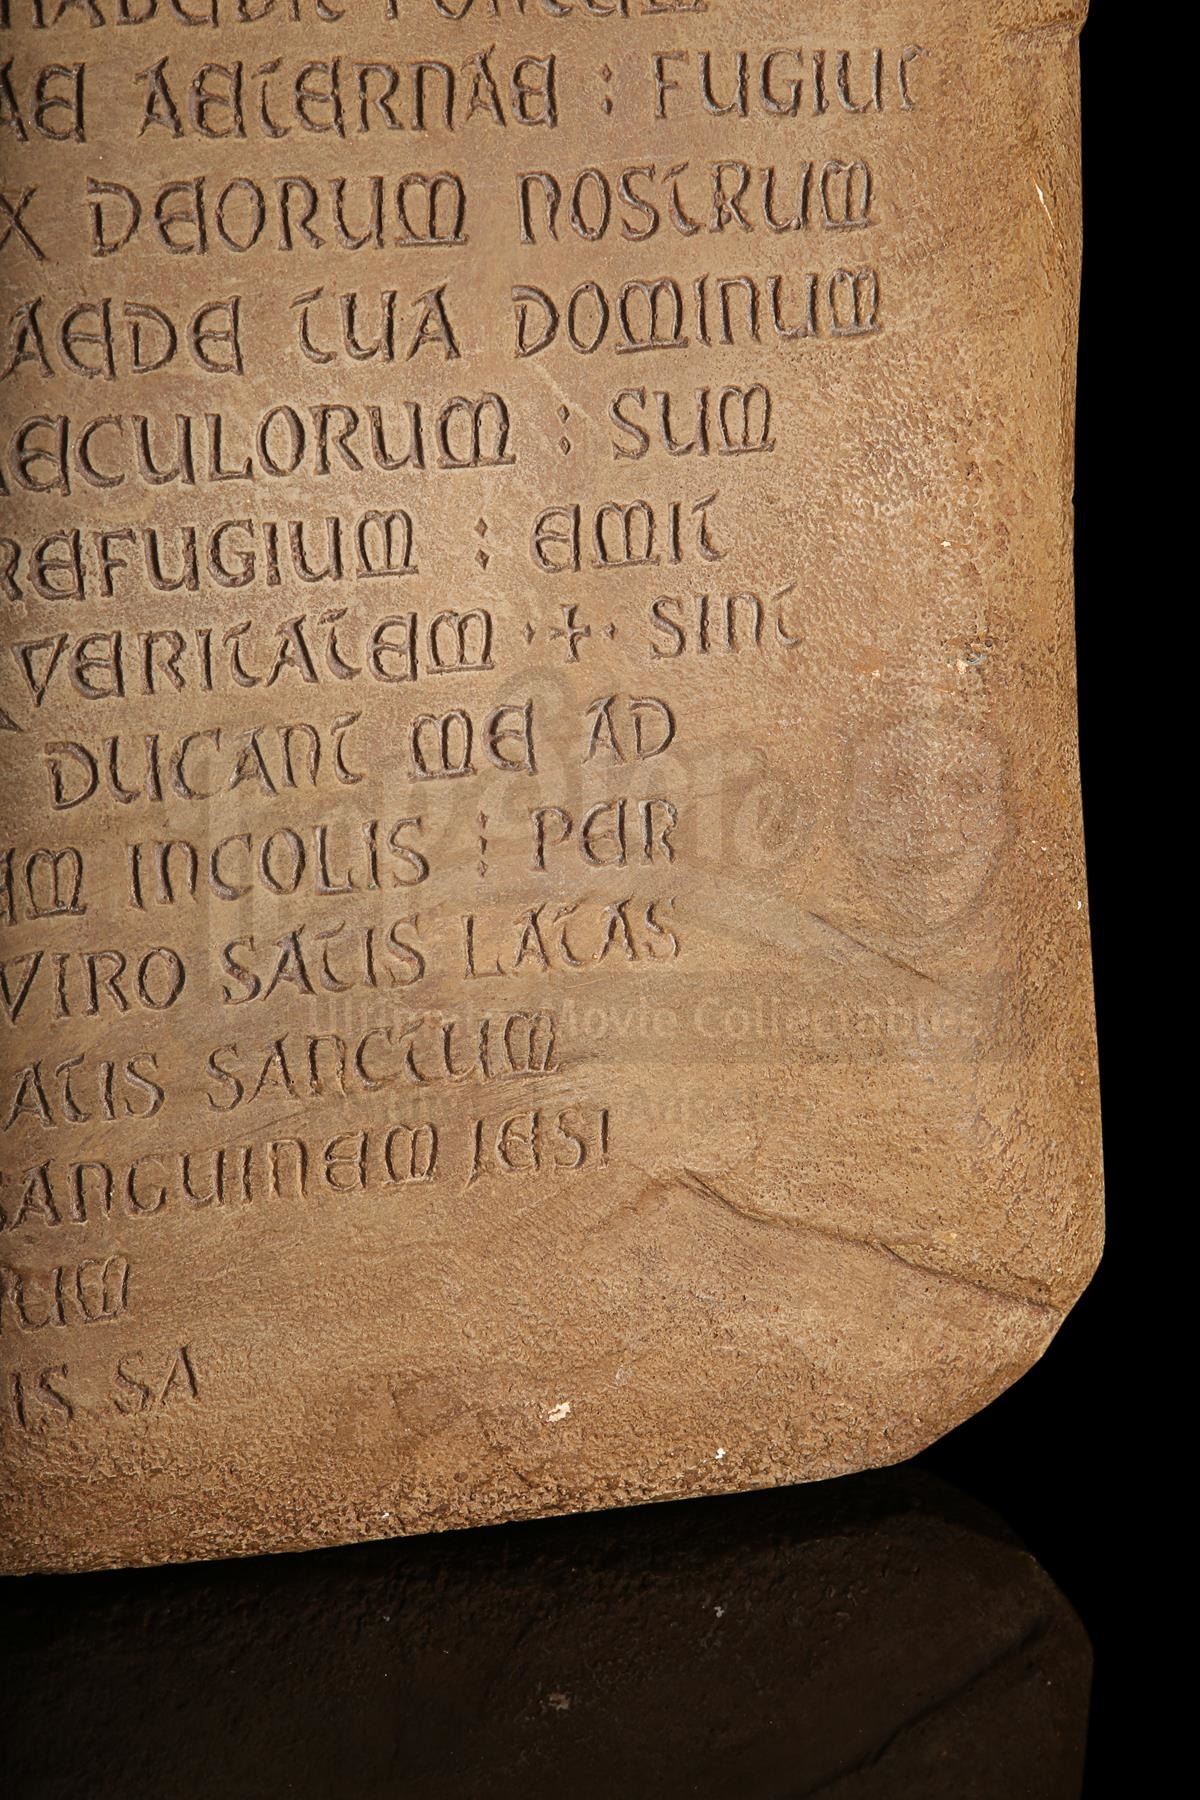 AE AETERNAE : FUGIUT
X DEORUM NOSTRUM
AEDE TUA DOMINUM
AECULORUM : SUM
REFUGIUM : EMIT
VERITATEM · + · SINT
DUCANT ME AD
AM INCOLIS : PER
VIRO SATIS LATAS
ATIS SANCTUM
SANGUINEM JESI
RUM
IS SA
Ultimate Movie Collectables